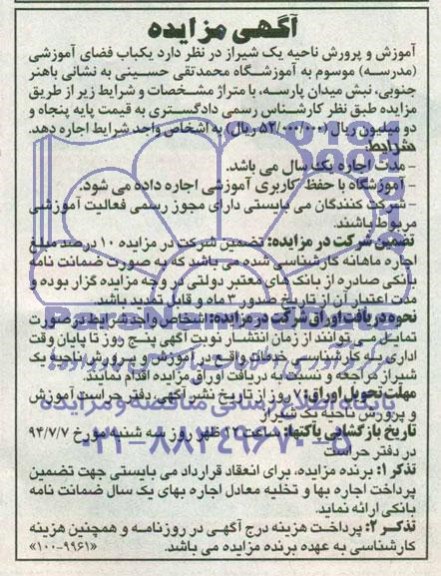 آگهی مزایده
آموزش و پرورش ناحیه یک شیراز در نظر دارد یکباب فضای آموزشی
(مدرسه) موسوم به آموزشگاه محمدتقی حسینی به نشانی باهنر
جنوبی، نبش میدان پارسه، با متراژ مشخصات و شرایط زیر از طریق
مزایده طبق نظر کارشناس رسمی دادگستری به قیمت پایه پنجاه و
دو میلیون ریال (۵۲/۰۰۰/۰۰۰ ریال) به اشخاص واجد شرایط اجاره دهد.
شرایط:
- مدت اجاره یک سال می باشد.
- آموزشگاه با حفظ کاربری آموزشی اجاره داده می شود.
- شرکت کنندگان می بایستی دارای مجوز رسمی فعالیت آموزشی
مربوط باشند.
تضمین شرکت در مزایده: تضمین شرکت در مزایده ۱۰ درصد مبلغ
اجاره ماهانه کارشناسی شده می باشد که به صورت ضمانت نامه
بانکی صادره از بانک های معتبر دولتی در وجه مزایده گزار بوده و
مدت اعتبار آن از تاریخ صدور ۳ ماه و قابل تمدید باشد.
نحوه دریافت اوراق شرکت در مزایده: اشخاص واجد شرایط در صورت
تمایل می توانند از زمان انتشار نوبت آگهی پنج روز تا پایان وقت
اداری به کارشناسی خدمات واقع در آموزش و پرورش ناحیه یک
شیراز مراجعه و نسبت به دریافت اوراق مزایده اقدام نمایند.
مهلت تحویل اوراق: ۷ روز از تاریخ نشر آگهی دفتر حراست آموزش
و پرورش ناحیه یک شیراز
تاریخ بازگشایی پاکتها: ساعت ۱۲ ظهر روز سه شنبه مورخ ۹۴/۷/۷
در دفتر حراست
تذکر ۱: برنده مزایده، برای انعقاد قرارداد می بایستی جهت تضمین
پرداخت اجاره بها و تخلیه معادل اجاره بهای یک سال ضمانت نامه
بانکی ارائه نماید.
تذکر ۲: پرداخت هزینه درج آگهی در روزنامه و همچنین هزینه
کارشناسی به عهده برنده مزایده می باشد. «۱۰۰-۹۹۶۱»
پایگاه اطلاع رسانی مناقصه و مزایده
۰۲۱-۸۸۳۴۹۶۷۰-۵